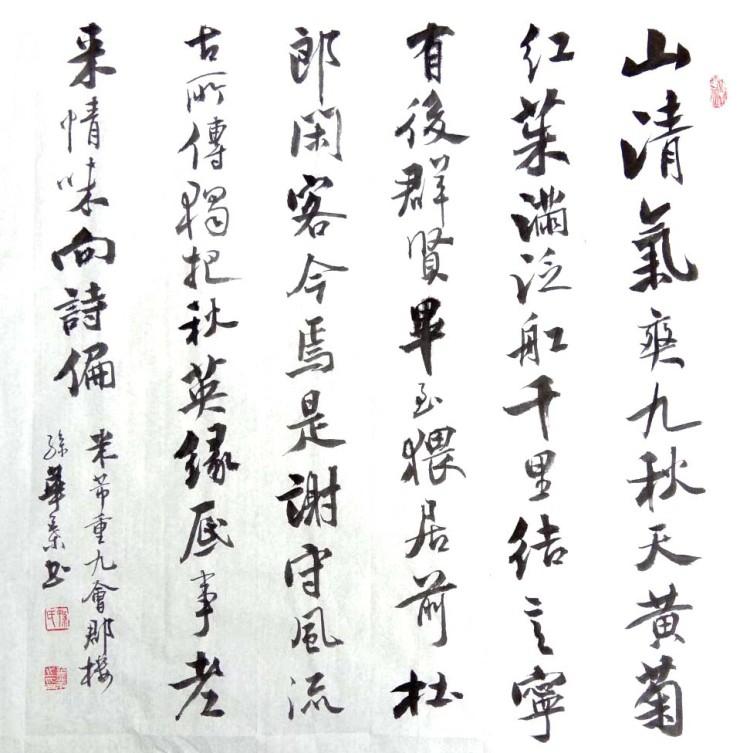 山清氣爽九秋天黄菊
红茱滿泛舡千里结言寧
有後群賢畢至猥居前杜
郎閑客今焉是謝守風流
古所傳獨把秋英緣底事老
来情味向詩偏
米芾重九會郡楼
孫華书